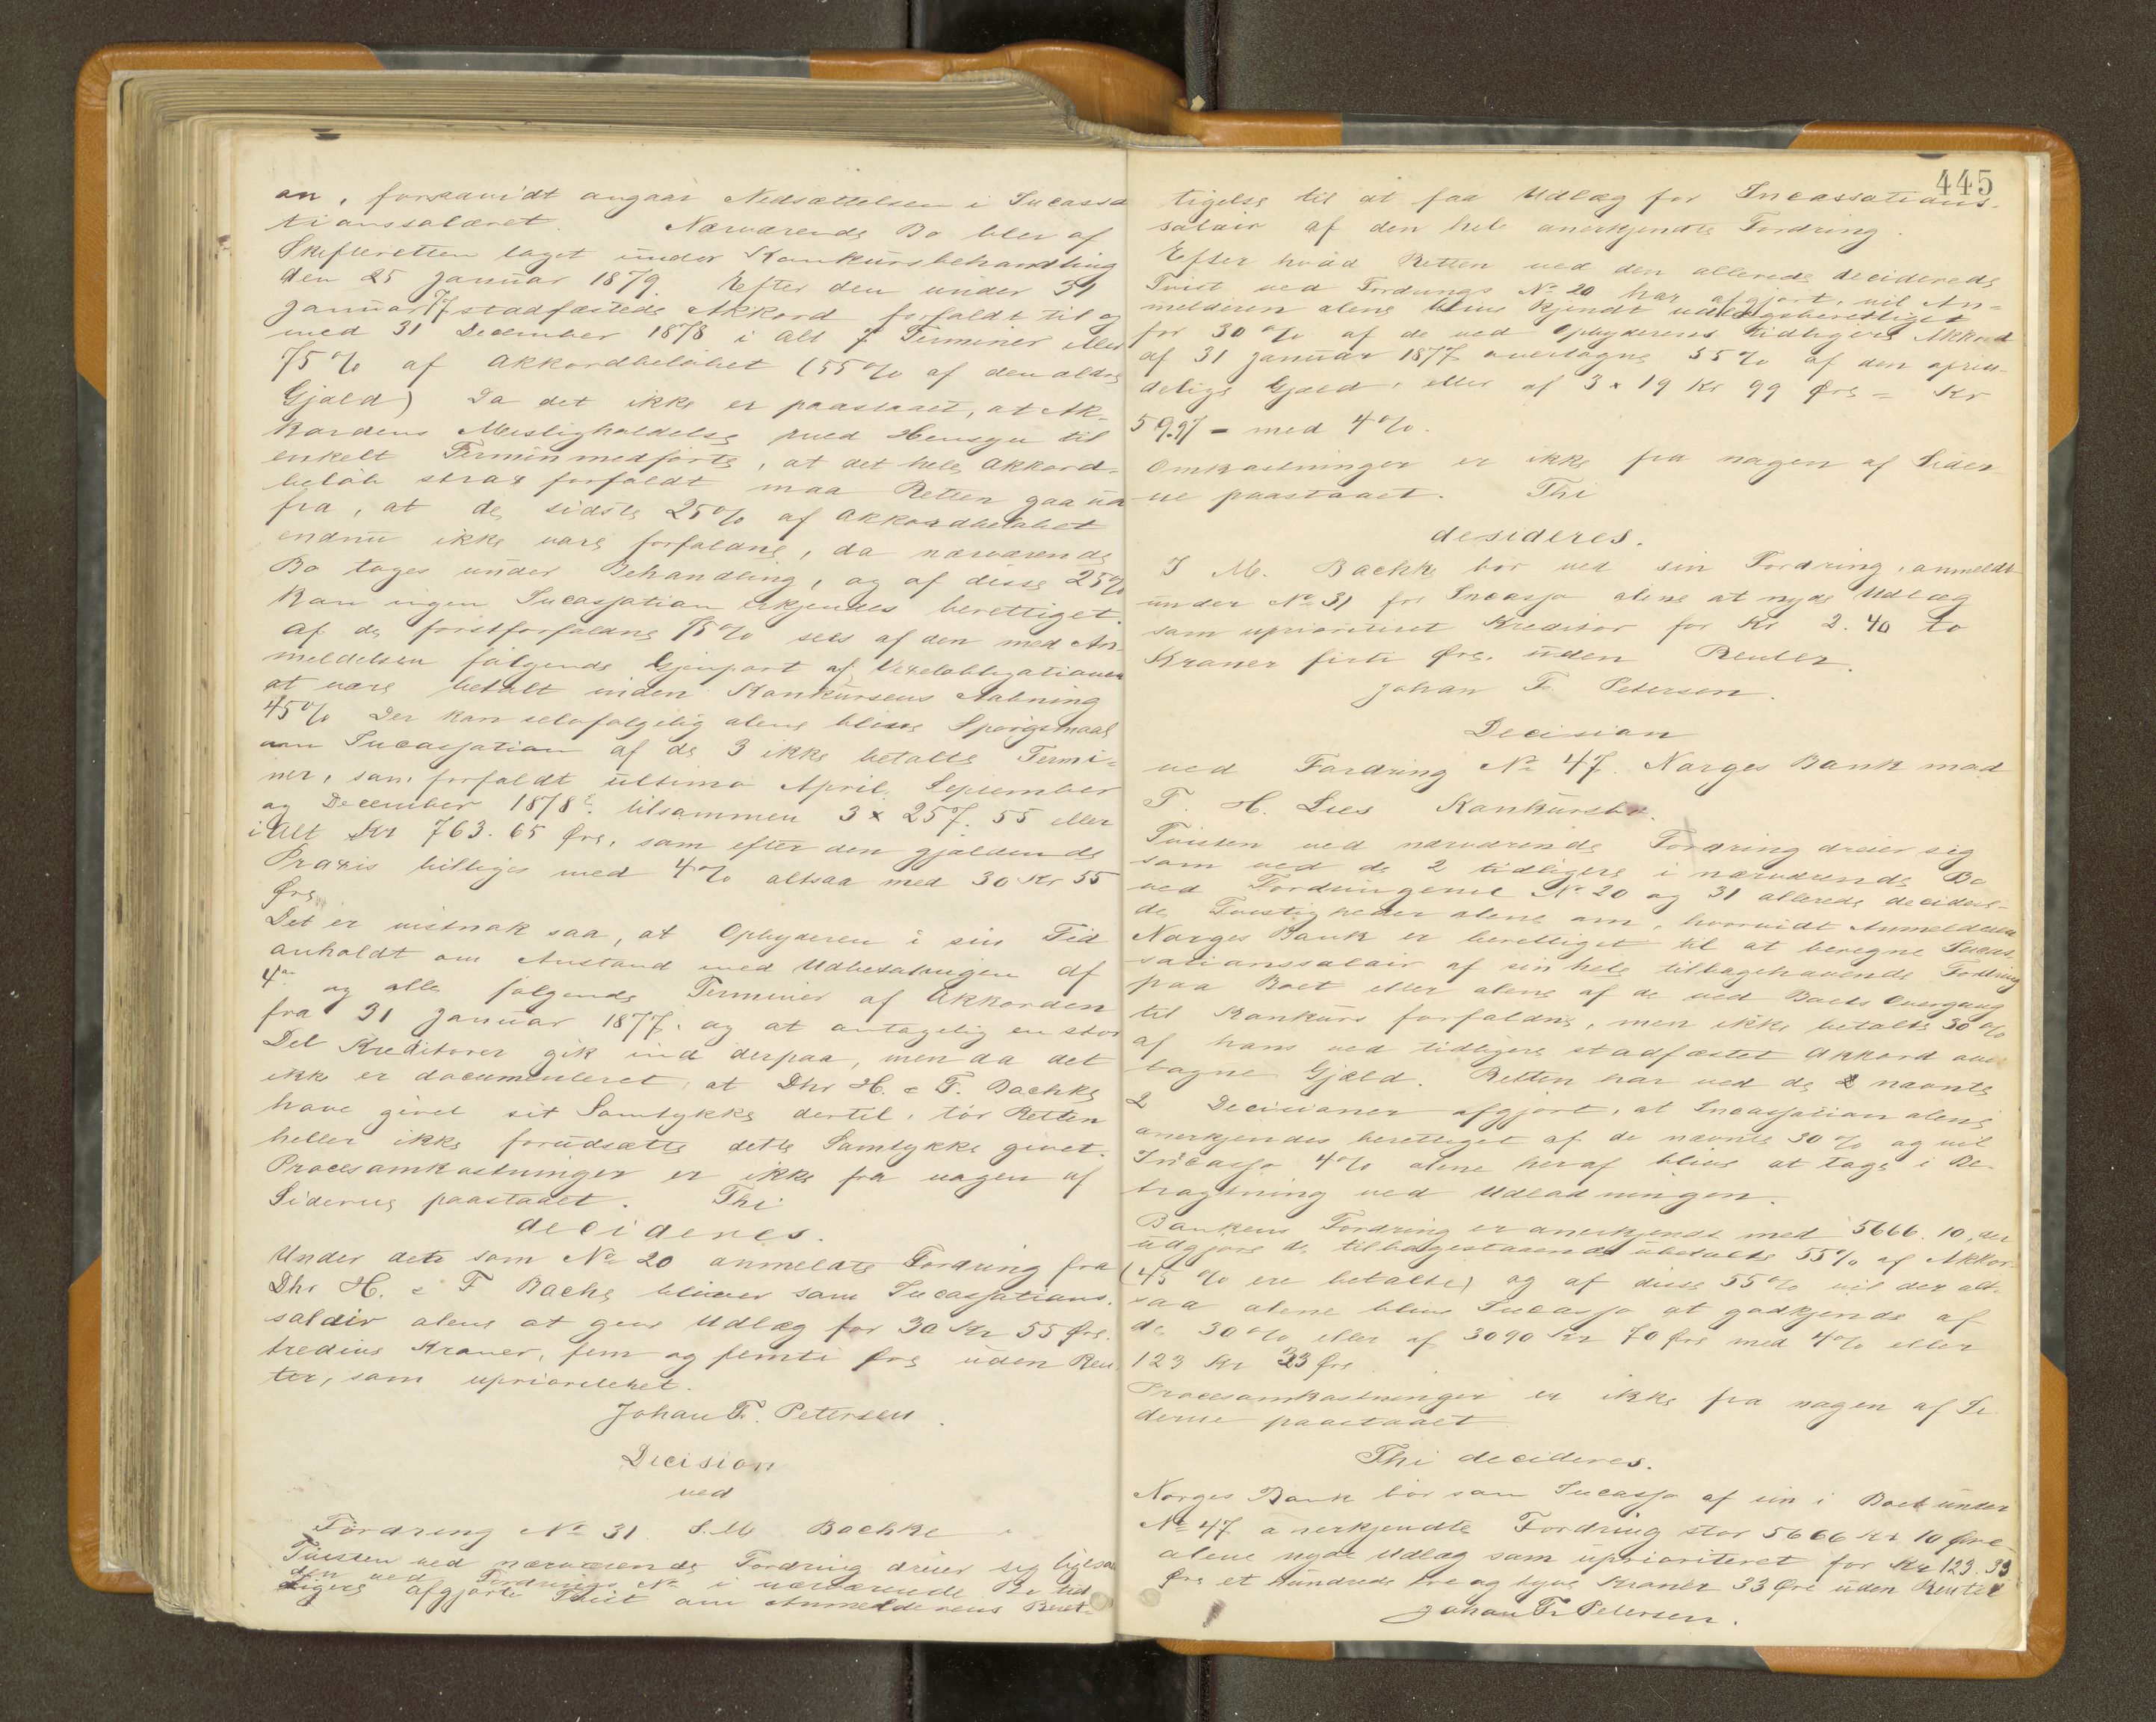 an, forsaavidt angaar Nedsættelsen i Incassa
tianssalæret. Nærværende Bo blev af
Skifteretten taget under Konkursbehandling
den 25 Januar 1879. Efter den under 31
Januar 77 stadfæstede Akkord forfaldt til og
med 31 December 1878 i alt 7 Terminer eller
75% af Akkordbeløbet (55% af den ældre
Gjæld) Da det ikke er paastaaet, at Ak-
kordens Misligholdelse med Hensyn til
enkelt Termin medførte, at det hele Akkord-
beløb strax forfaldt maa Retten gaa ud
fra, at de sidste 25% af Akkordbeløbet
endnu ikke vare forfaldne, da nærværende
Bo toges under Behandling, og af disse 25%
kan ingen Incassation erkjendes berettiget.
Af de førstforfaldne 75% sees af den med An-
meldelsen følgende Gjenpart af Vexelobligationen
at være betalt inden Konkursens Aabning
45% Der kan selvfølgelig alene blive Spørgsmaal
om Incassation af de 3 ikke betalte Termi-
ner, som forfaldt ultimo April, September
og December 1878 tilsammen 3 x 257. 55 eller
i Alt Kr 763. 65 Øre, som efter den gjældende
Praxis billiges med 4% altsaa med 30 Kr 55
Øre
Det er vistnok saa, at Opbyderen i sin Tid
anholdt om Anstand med Udbetalingen af
4de og alle følgende Terminer af Akkorden
fra 31 Januar 1877. og at antagelig en stor
Del Kreditorer gik ind derpaa, men da det
ikke er documenteret, at Dhr H. & F. Bachke
have givet sit Samtykke dertil, tør Retten
heller ikke forudsætte dette Samtykke givet.
Procesomkostninger er ikke fra nogen af
Siderne paastaaet. Thi
decideres.
Under den som No 20 anmeldte Fordring fra
Dhr H. & F Bachke bliver som Incassations-
salair alene at give Udlæg for 30 Kr 55 Øre.
tredive Kroner, fem og femti Øre uden Ren-
ter, som uprioriteret.
Johan Fr. Petersen.
Decision
ved
Fordring No 31. I. M. Bachke
Tvisten ved nærværende Fordring dreier sig ligesom
den ved Fordrings No i nærværende Bo tid-
ligere afgjorte Tvist om Anmelderens Beret-
445
tigelse til at faa Udlæg for Incassations-
salair af den hele anerkjendte Fordring.
Efter hvad Retten ved den allerede deciderede
Tvist ved Fordrings No 20 har afgjort, vil An-
melderen alene blive kjendt udlægsberettiget
for 30% af de ved Opbyderens tidligere Akkord
af 31 Januar 1877 overtagne 55% af den oprin-
delige Gjæld, eller af 3 x 19 Kr 99 Øre = Kr
59.97 = med 4%.
Omkostninger er ikke fra nogen af Sider
ne paastaaet. Thi
desideres.
I M. Bachke bør ved sin Fordring, anmeldt
under No 31 for Incasso alene at nyde Udlæg
som uprioriteret Kreditor for Kr 2. 40 to
Kroner firti Øre. uden Renter.
Johan Fr. Petersen.
Decision
ved Fordring No 47. Norges Bank mod
F. H. Lies Konkursbo.
Tvisten ved nærværende Fordring dreier sig
som ved de 2 tidligere i nærværende Bo
ved Fordringerne No 20 og 31 allerede decidere-
de Tvistigheder alene om, hvorvidt Anmelderen
Norges Bank er berettiget til at beregne Incas-
sationssalair af sin hele tilbagehavende Fordring
paa Boet eller alene af de ved Boets Overgang
til Konkurs forfaldne, men ikke betalte 30%
af hans ved tidligere stadfæstet Akkord over
tagne Gjæld. Retten har ved de nævnte
2 Decisioner afgjort, at Incassation alene
anerkjendes berettiget af de nævnte 30% og vil
Incasso 4% alene heraf blive at tage i Be-
tragtning ved Udlodningen.
Bankens Fordring er anerkjendt med 5666. 10, der
udgjøre de tilbagestaaende ubetalte 55% af Akkor-
(45% ere betalte) og af disse 55% vil der alt-
saa alene blive Incasso at godkjende af
de 30% eller af 3090 Kr 70 Øre med 4% eller
123 Kr 33 Øre.
Procesomkostninger er ikke fra nogen af Si
derne paastaaet
Thi decideres.
Norges Bank bør som Incasso af sin i Boet under
No 47 anerkjendte Fordring stor 5666 Kr 10 Øre
alene nyde Udlæg som uprioriteret for Kr 123. 33
Øre et hundrede tre og tyve Kroner 33 Øre uden Renter
Johan Fr Petersen.